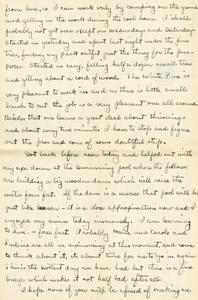 from here, so I can work only by camping on the ground
and getting in the work during the cool hours. I shall
probably not get over except on Wednesdays and Saturdays
started in yesterday and spent last night under the pine
trees, finding my pack outfit just the thing for the pur-
pose. Started in early, felling half a dozen small trees
and getting about a cord of wood. The White Pine is
very pleasant to work in and as there is little small
brush to cut the job is a very pleasant one all around
Besides that one learns a great deal about thinnings
and about every two minutes I have to stop and figure
out the pros and cons of some doubtful step.
Got back before noon today and helped out with
my axe down at the swimming pool where the fellows
are building a big wooden dam which will raise the
water four feet. If the dam is a success that pool will be
just like - it is a close approximation now and I
enjoyed my swim today immensely. I am learning
to dive - fair yet. Probably and Carole and
are all in swimming at this moment and come
to think about it, it's about time for me to go in again
this is the hottest day we have had but there is a fine
breeze which makes it not half bad after all.
I hope none of you will be afraid of making me